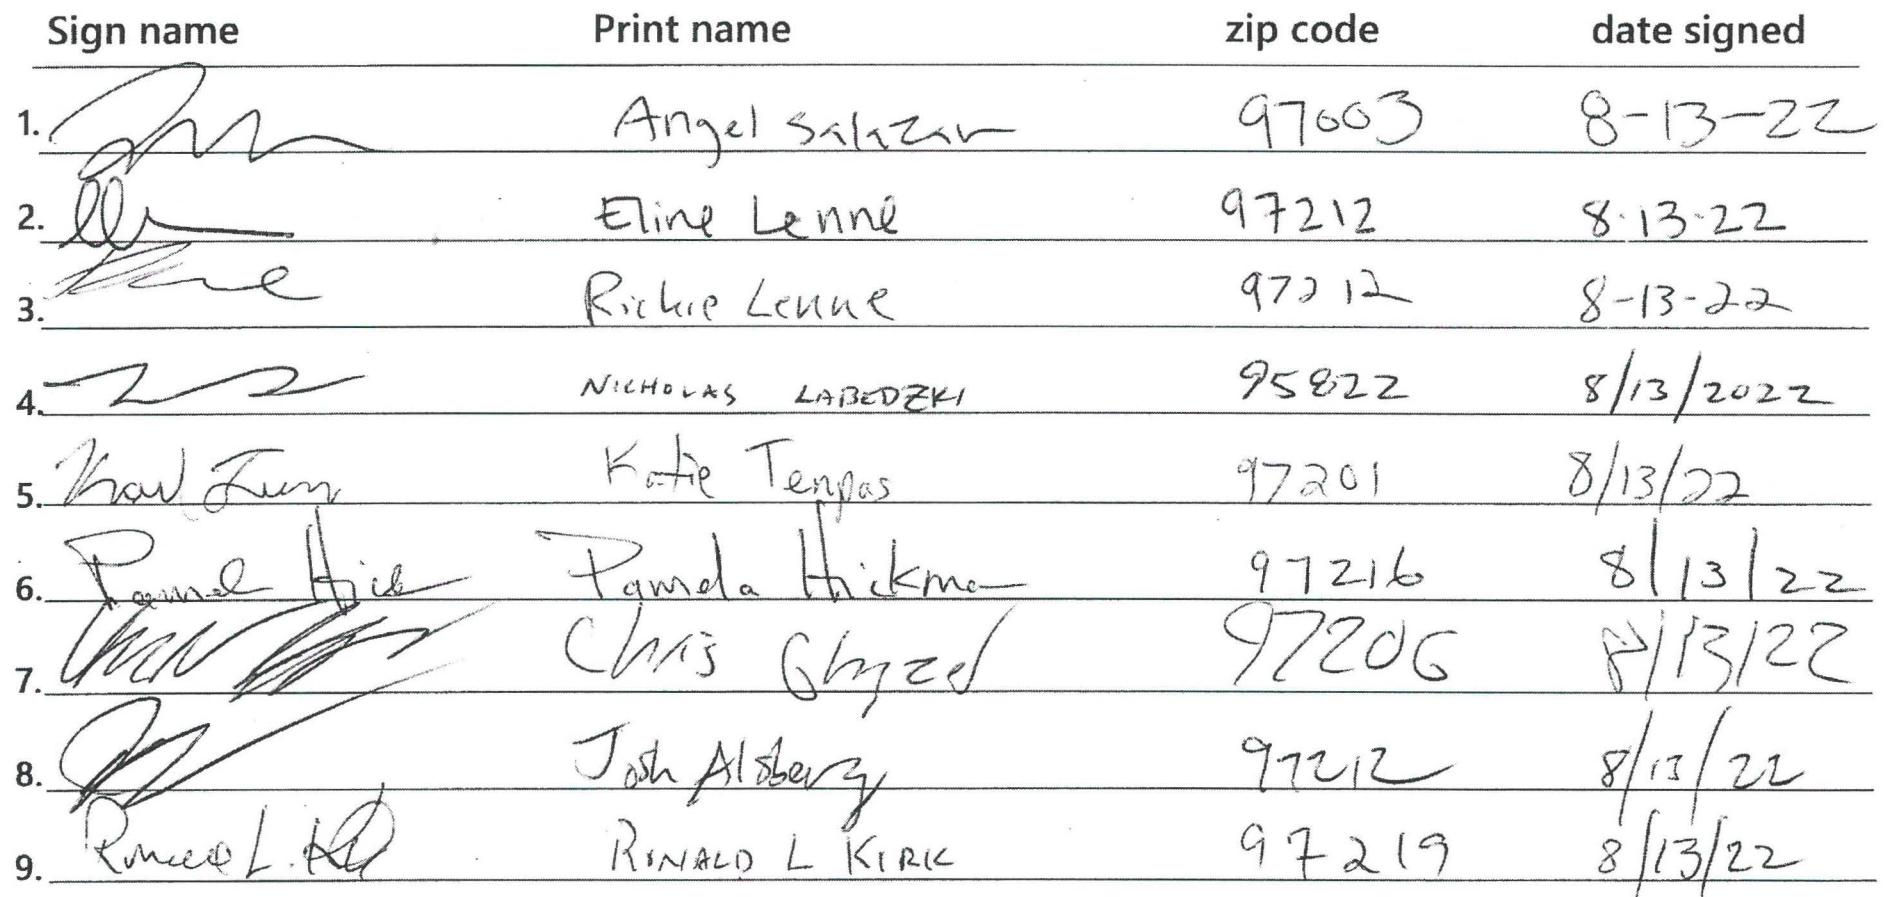 Sign name Print name zip code date signed
1. Angel Salazar 97003 8-13-22
2. Eline Lenne 97212 8-13-22
3. Richie Lenne 97212 8-13-22
4. NICHOLAS LABEDZKI 95822 8/13/2022
5. Katie Tenpas 97201 8/13/22
6. Pamela Hickman 97216 8/13/22
7. Chris 97206 8/13/22
8. Josh Alsberg 97212 8/13/22
9. RONALD L KIRK 97219 8/13/22